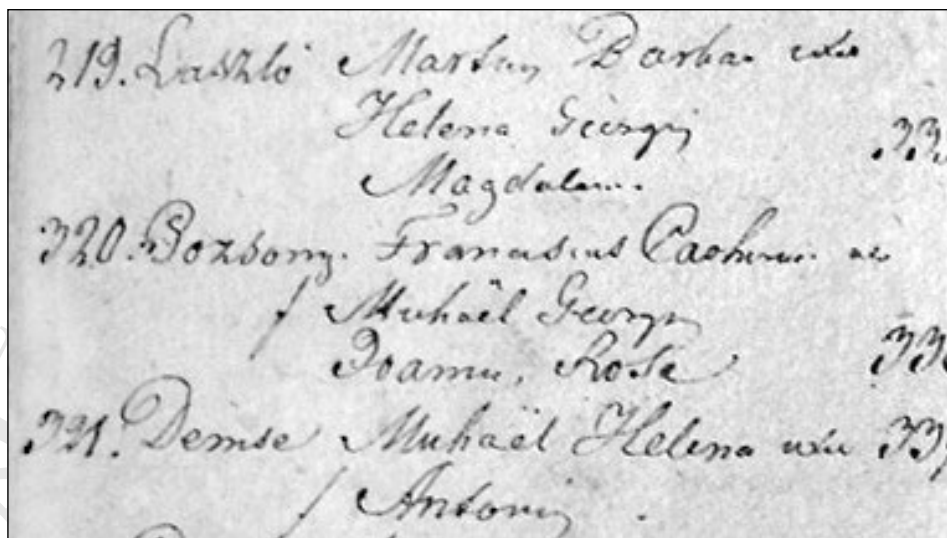 219. László Martin Barba uxor
Helena Georgij 33
Magdalena.
320. Bozsony. Franciscus Catharina ux
f Michaël Georgij
Joannes, Rosa 33
321. Demse Michaël Helena uxor 33
f Antonij .